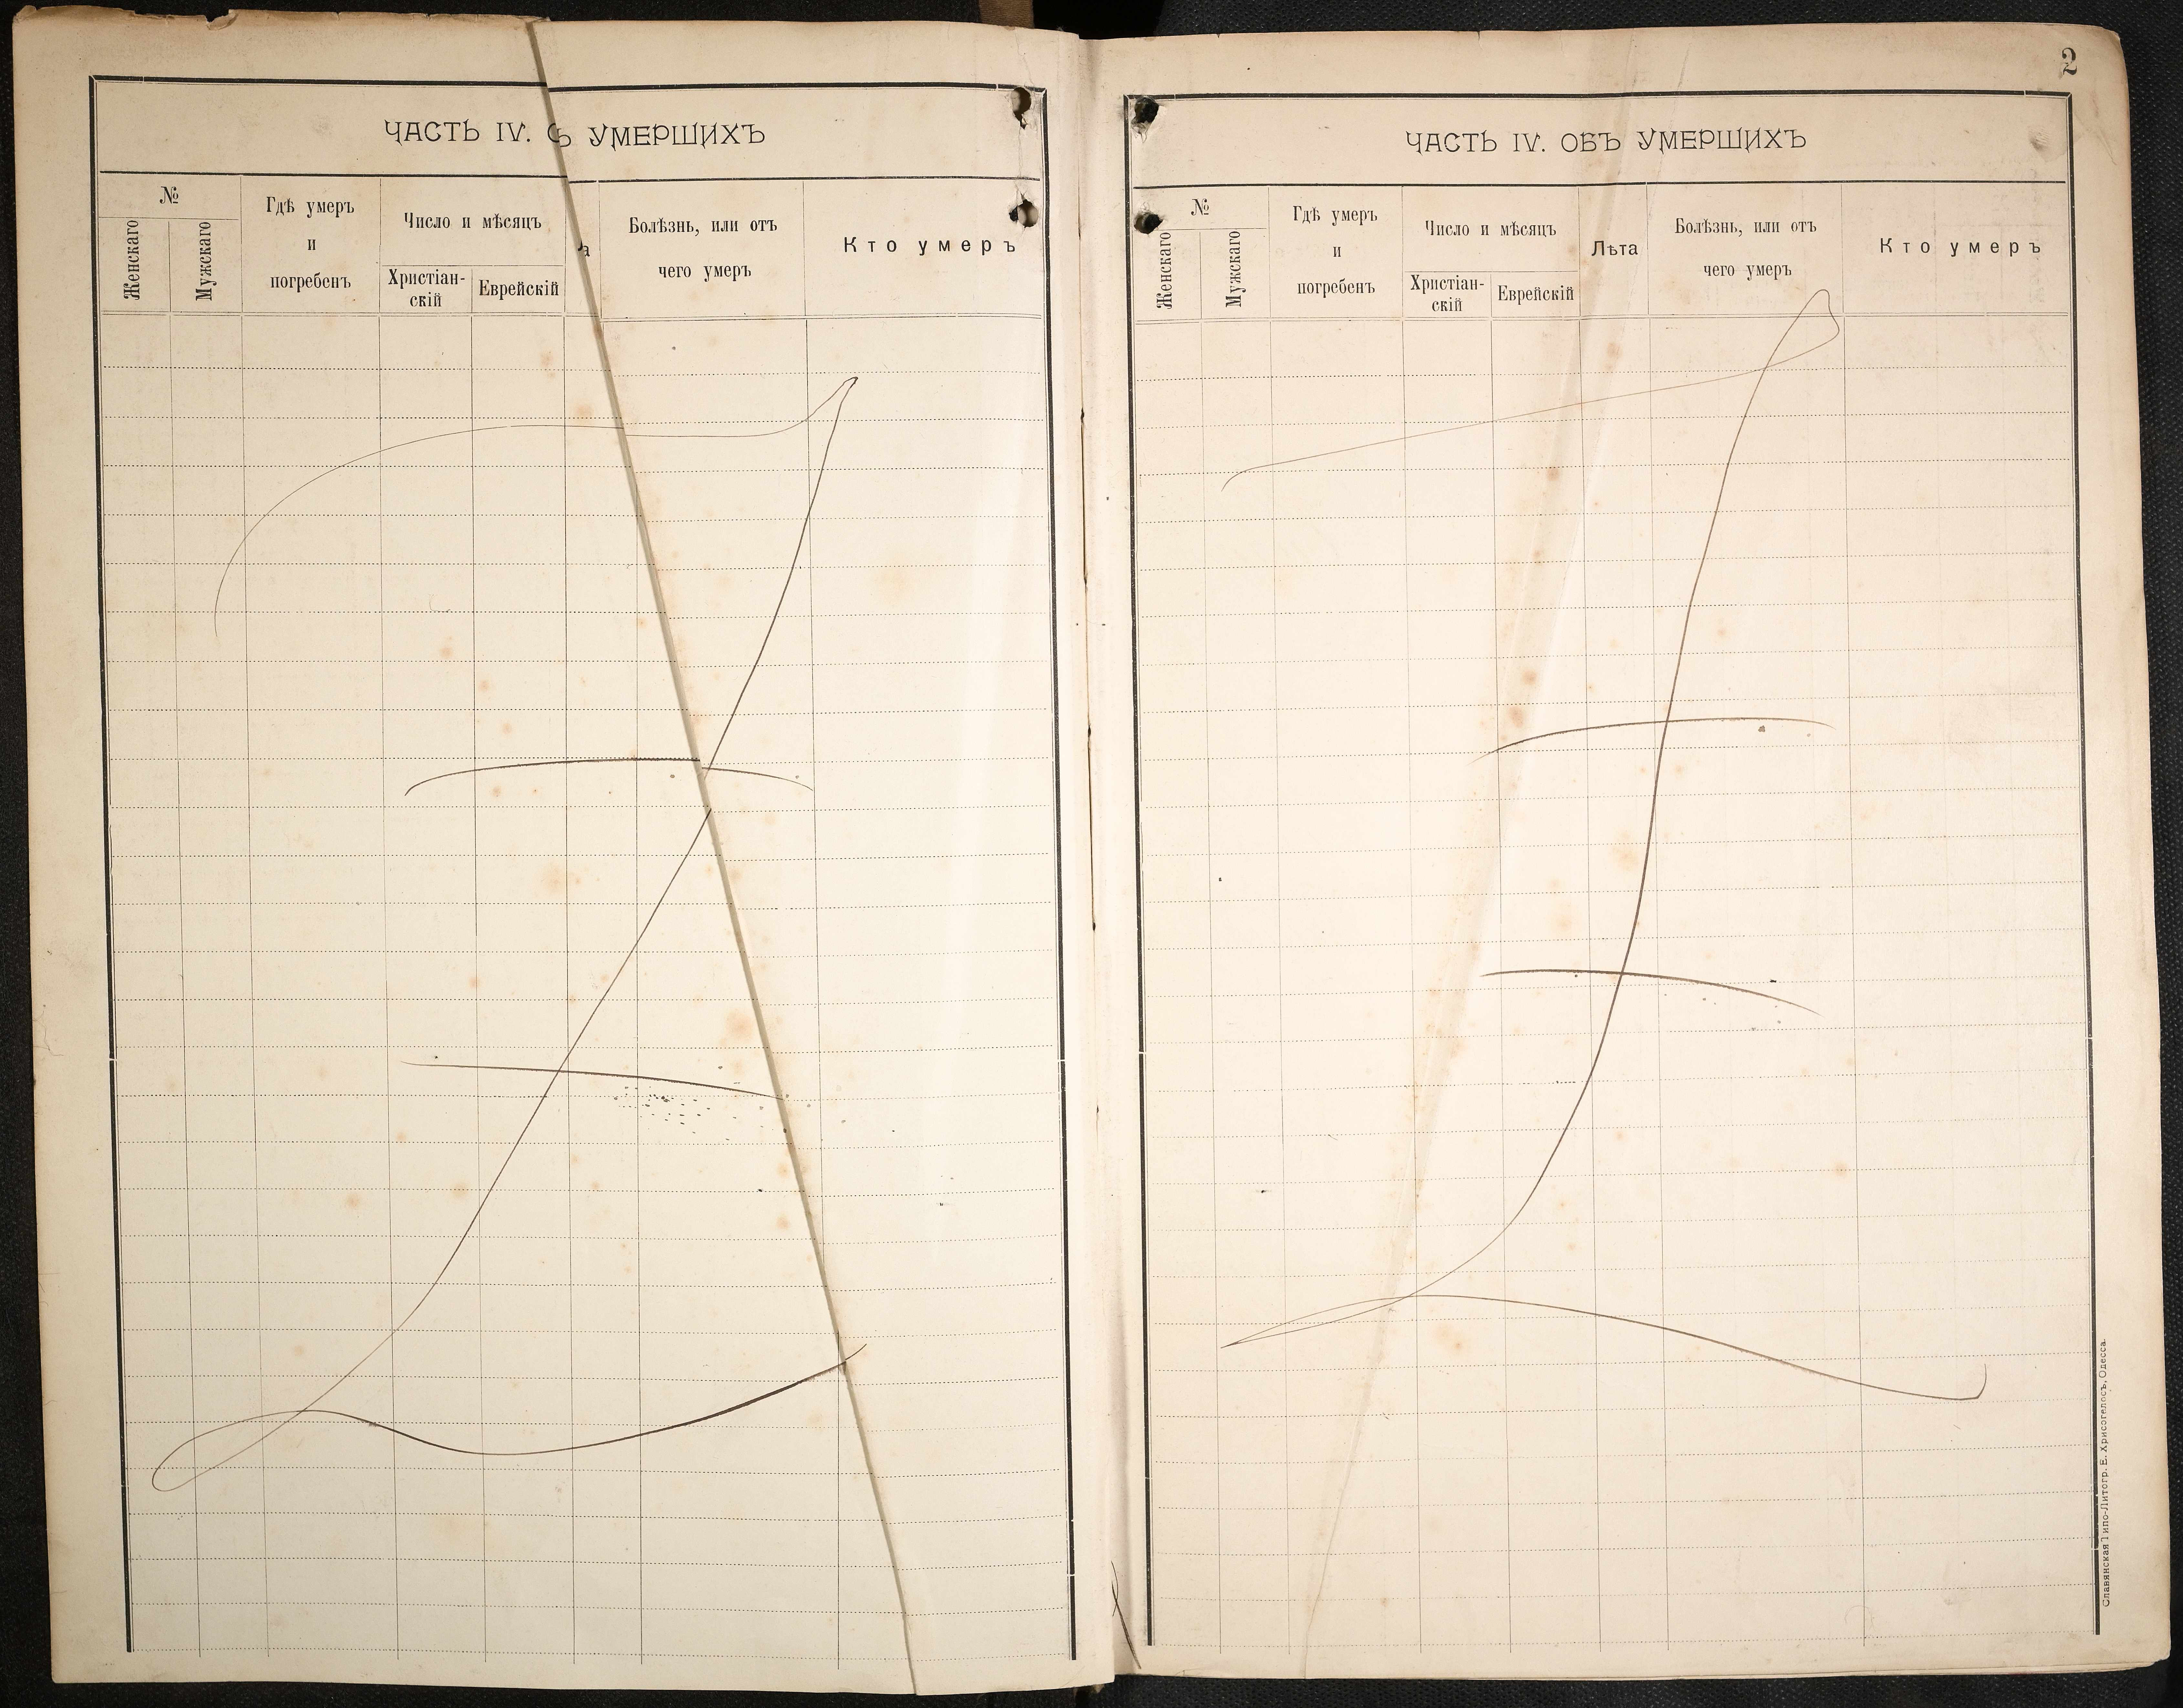 ЧАСТЬ IV. УМЕРШИХЪ
№
Женскаго
Мужскаго
Гдѣ умеръ
и
погребенъ
Число и мѣсяцъ
Христіан-
скій
Еврейскій
а
Болѣзнь, или отъ
чего умеръ
Кто умеръ
2
ЧАСТЬ IV. ОБЪ УМЕРШИХЪ
№
Женскаго
Мужскаго
Гдѣ умеръ
и
погребенъ
Число и мѣсяцъ
Христіан-
скій
Еврейскій
Лѣта
Болѣзнь, или отъ
чего умеръ
Кто умеръ
Славянская Типо-Литогр. Е. Хрисогелосъ, Одесса.